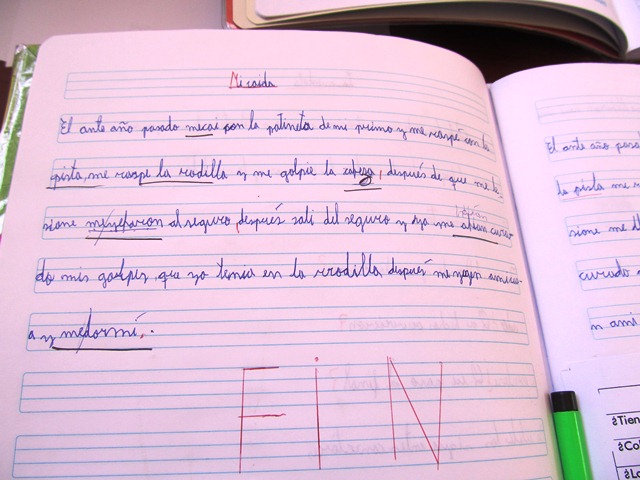 Mi caida
El ante año pasado mecai con la patineta de mi primo y me raspé con la
pista, me raspe la rodilla y me golpie la cabeza, después de que me le-
sione meyebaron al seguro, después sali del seguro y ya me abian cura-
do mis golpes que yo tenia en la rrodilla después me
a y medormí.
FiN
El ante año pasa
la pista me r
sione me
curado
n ami
¿Tien
¿Co
¿Lo